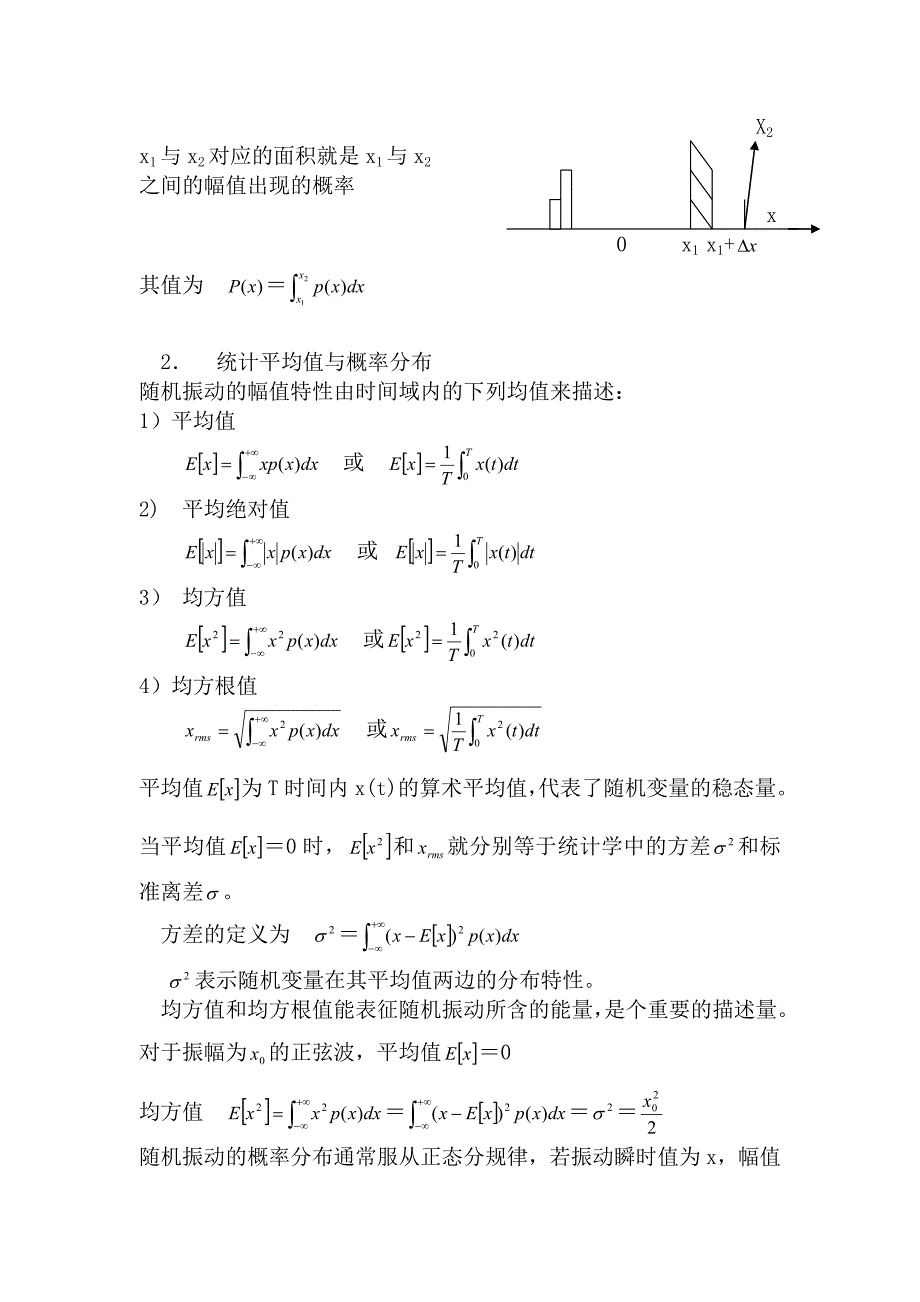 X₂
x₁与x₂对应的面积就是x₁与x₂
之间的幅值出现的概率
x
0 x₁ x₁+Δx
其值为 P(x)＝∫_{x₁}^{x₂} p(x)dx
2． 统计平均值与概率分布
随机振动的幅值特性由时间域内的下列均值来描述：
1）平均值
E[x]=∫_{−∞}^{+∞} xp(x)dx 或 E[x]=\frac{1}{T}∫_0^T x(t)dt
2） 平均绝对值
E[|x|]=∫_{−∞}^{+∞} |x|p(x)dx 或 E[|x|]=\frac{1}{T}∫_0^T |x(t)|dt
3） 均方值
E[x²]=∫_{−∞}^{+∞} x²p(x)dx 或E[x²]=\frac{1}{T}∫_0^T x²(t)dt
4）均方根值
x_{rms}=\sqrt{∫_{−∞}^{+∞} x²p(x)dx} 或x_{rms}=\sqrt{\frac{1}{T}∫_0^T x²(t)dt}
平均值E[x]为T时间内x(t)的算术平均值，代表了随机变量的稳态量。
当平均值E[x]＝0时，E[x²]和x_{rms}就分别等于统计学中的方差σ²和标
准离差σ。
方差的定义为 σ²＝∫_{−∞}^{+∞} (x−E[x])²p(x)dx
σ²表示随机变量在其平均值两边的分布特性。
均方值和均方根值能表征随机振动所含的能量，是个重要的描述量。
对于振幅为x₀的正弦波，平均值E[x]＝0
均方值 E[x²]=∫_{−∞}^{+∞} x²p(x)dx＝∫_{−∞}^{+∞} (x−E[x])²p(x)dx＝σ²＝\frac{x₀²}{2}
随机振动的概率分布通常服从正态分规律，若振动瞬时值为x，幅值